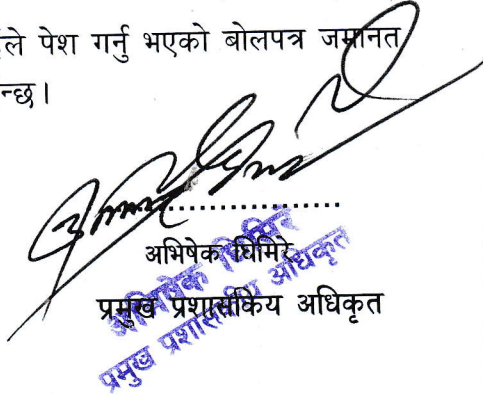 ले पेश गर्नु भएको बोलपत्र जमानत
न्छ।
....................
अभिषेक घिमिरे
प्रमुख प्रशासकिय अधिकृत
अभिषेक घिमिरे
प्रमुख प्रशासकिय अधिकृत